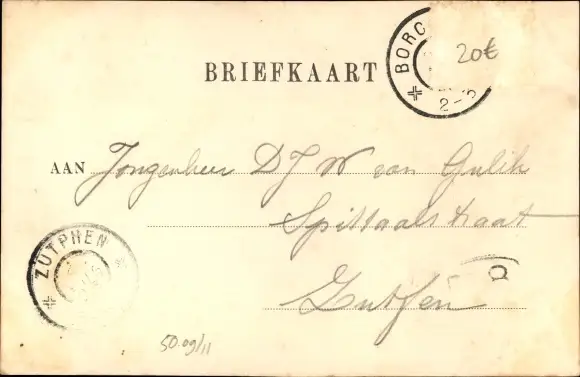 BORC
20€
2-3
BRIEFKAART
AAN Jongenheer D J W van Gulik
Spittaalstraat
Zutfen
ZUTPHEN
50.09/11